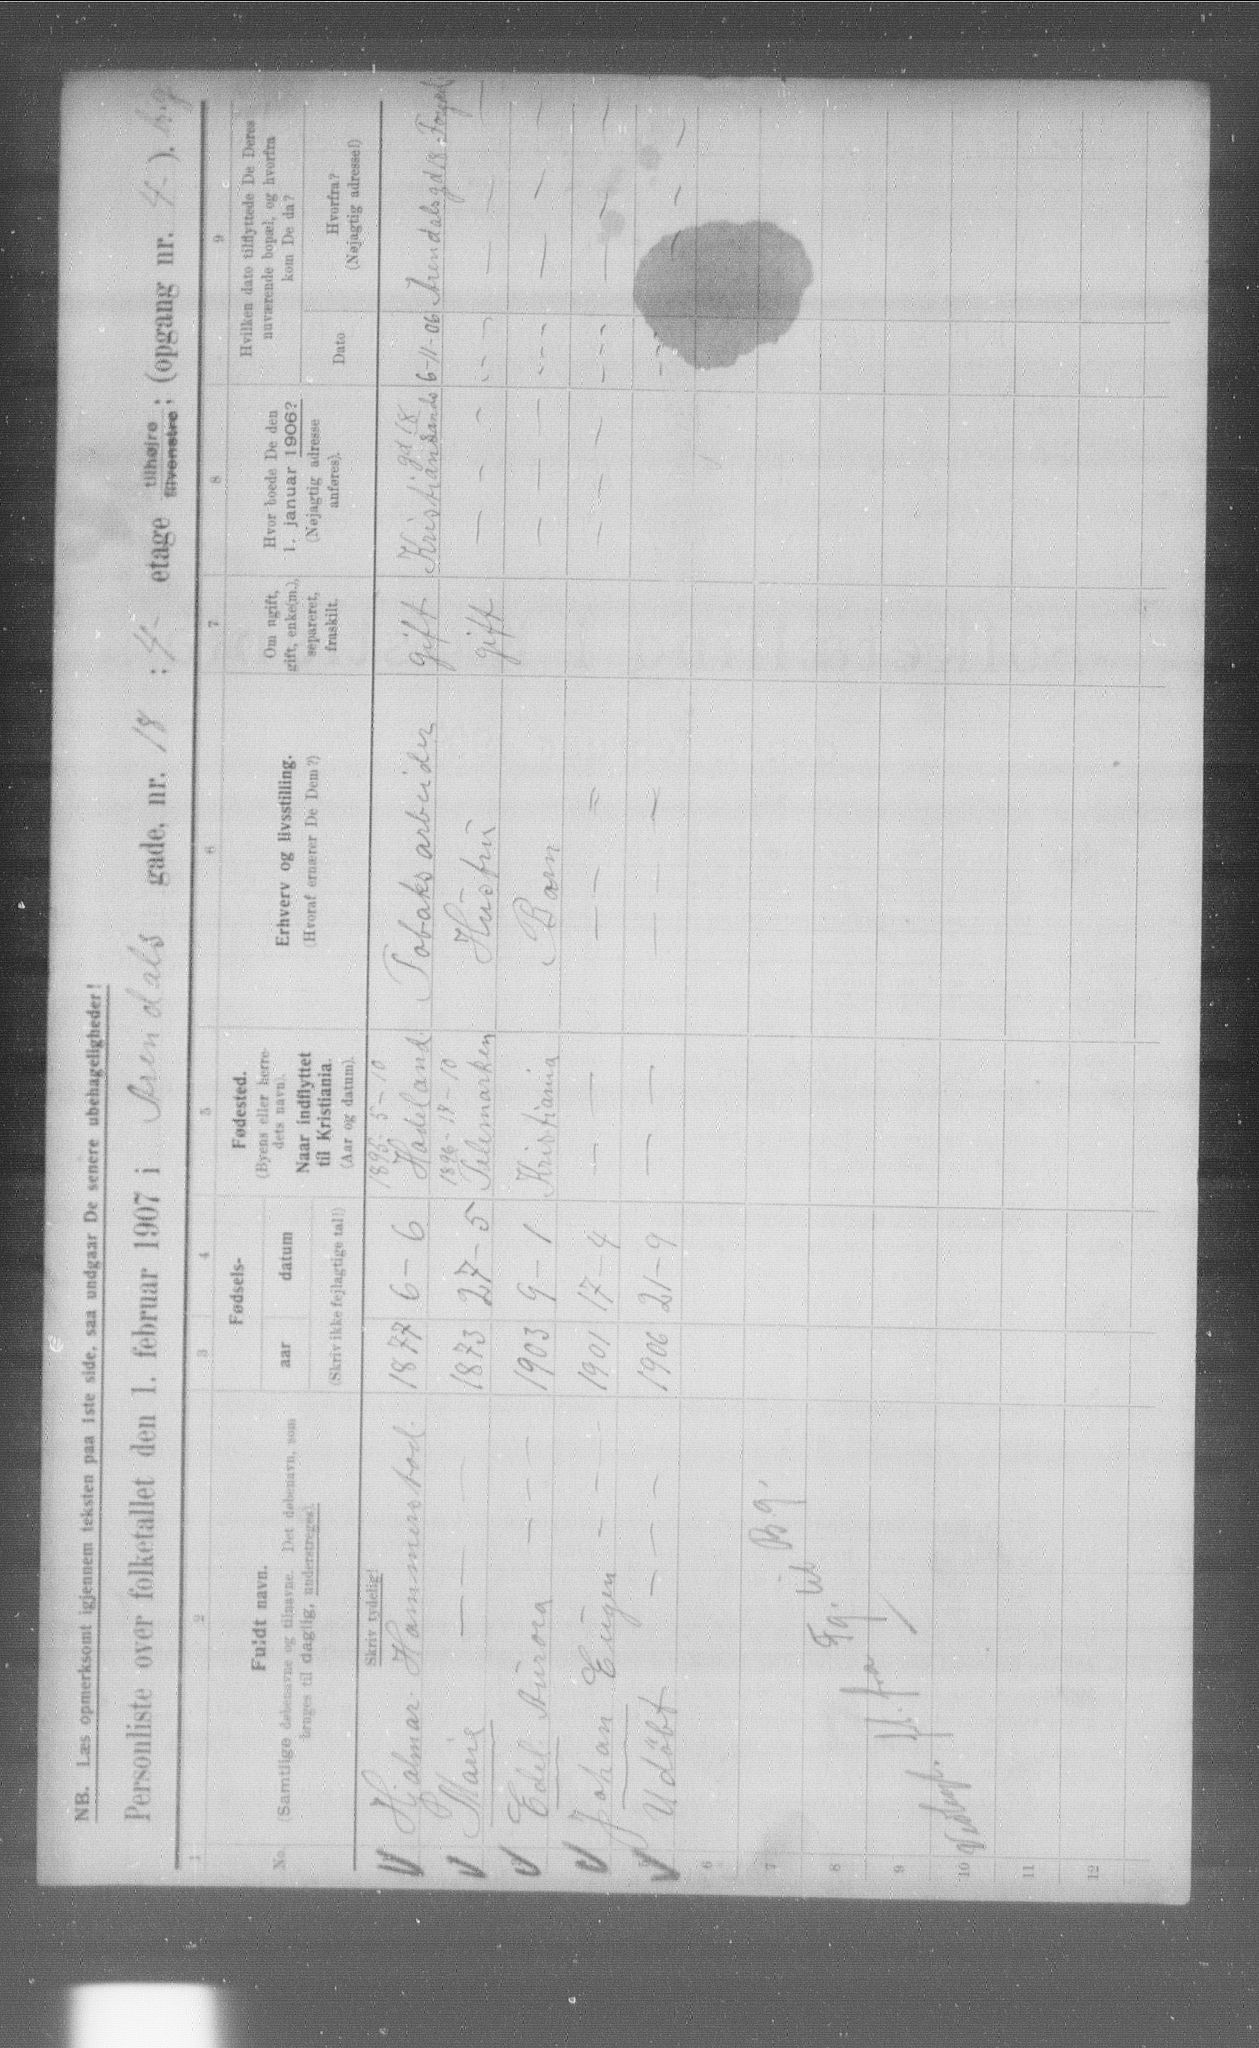 NB. Læs opmerksomt igjennem teksten paa 1ste side, saa undgaar De senere ubehageligheder!
Personliste over folketallet den 1. februar 1907 i Arendals gade, nr. 18 ; 4- etage tilhøjre tilvenstre ; (opgang nr. 4-). b.g
1 2 3 4 5 6 7 8 9
No. Fuldt navn. (Samtlige døbenavne og tilnavne. Det døbenavn, som bruges til daglig, understreges). Fødsels- aar datum (Skriv ikke fejlagtige tal!) Fødested. (Byens eller herredets navn). Naar indflyttet til Kristiania. (Aar og datum). Erhverv og livsstilling. (Hvoraf ernærer De Dem?) Om ugift, gift, enke(m.), separeret, fraskilt. Hvor boede De den 1. januar 1906? (Nøjagtig adresse anføres). Hvilken dato tilflyttede De Deres nuværende bopæl, og hvorfra kom De da? Dato Hvorfra? (Nøjagtig adresse!)
Skriv tydelig!
Hjalmar Hammerstad. 1877 6-6 1895-5-10 Hadeland. Tobaksarbeider gift Kristiansands gd 18 6-11-06 Arendals gd 18
Marie — — — 1873 27-5 1896-18-10 Telemarken Hustru gift — — — - - - — — —
Edel Aurora — — — 1903 9-1 Kristiania Barn — — — - - - — — —
Johan Eugen — — — 1901 17-4 — — — — = — — — - - - — — —
Udöbt — — — 1906 21-9 — — — — — - - - — — —
6
7
8
9
10
11
12
fra Fg. til Bg.